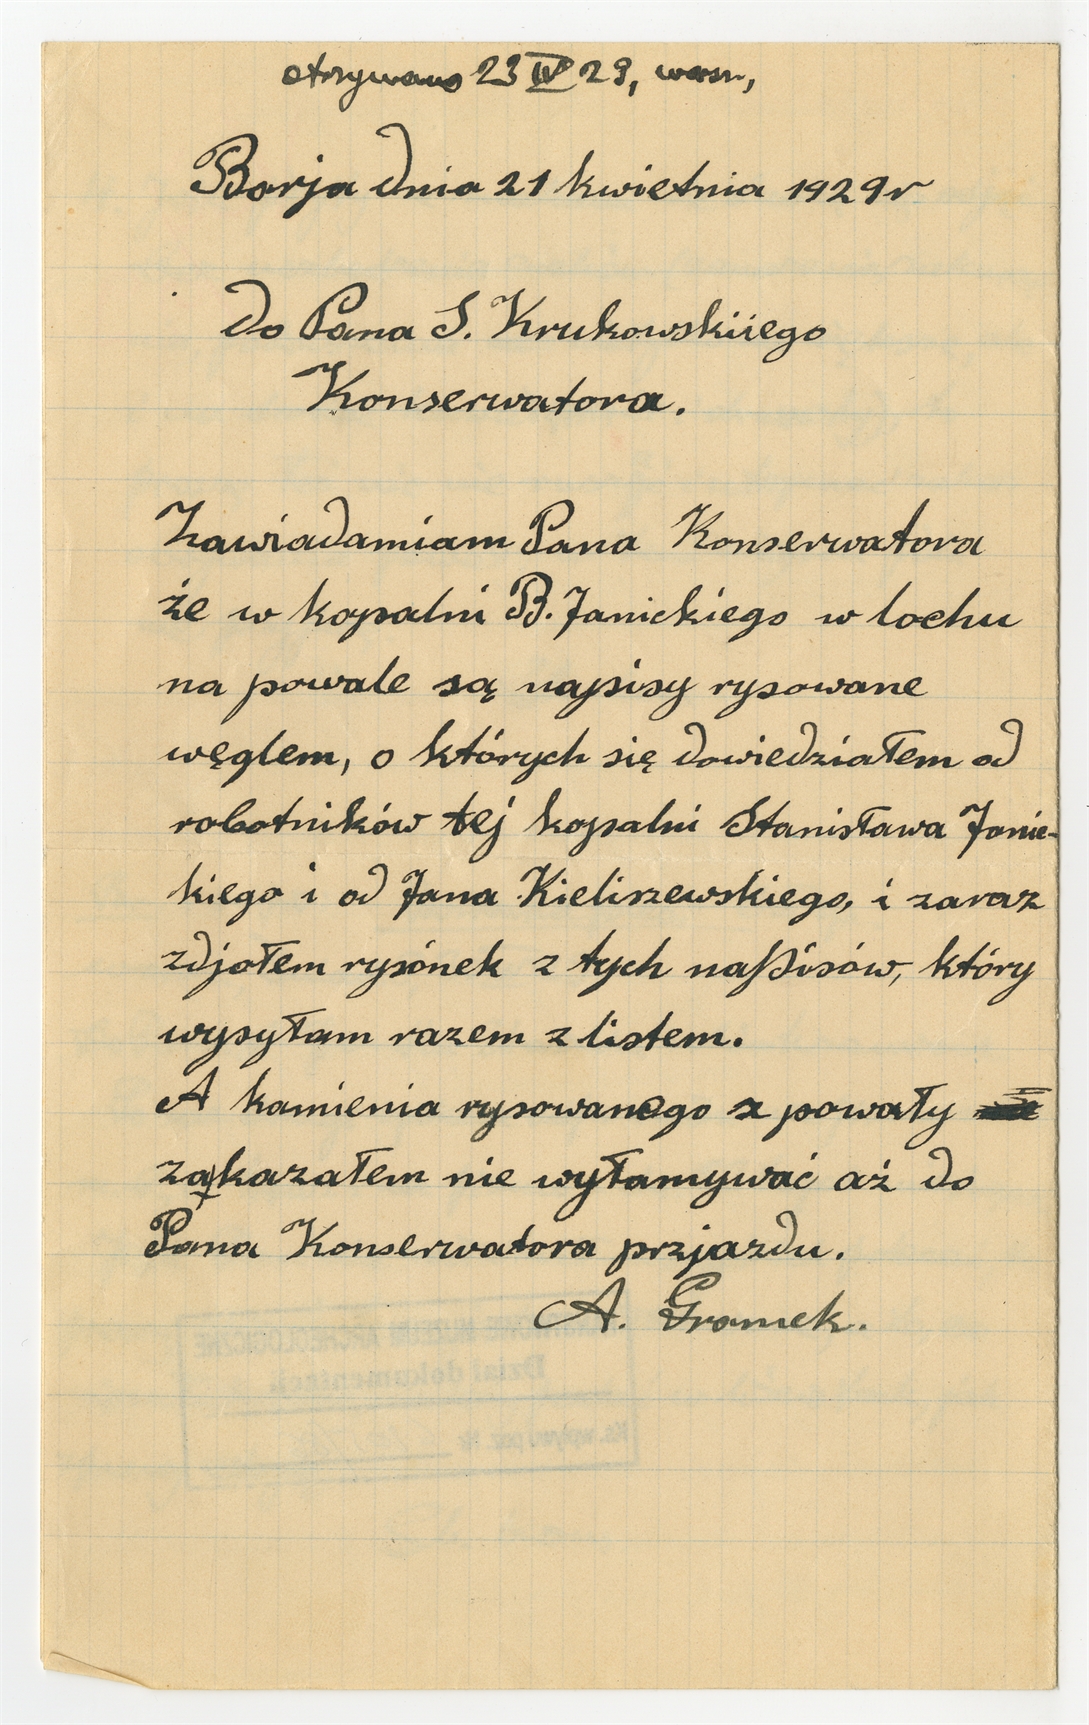 otrzymano 23 IV 29,
Borja dnia 21 kwietnia 1929 r
Do Pana S. Krukowskiiego
Konserwatora.
Zawiadamiam Pana Konserwatora
że w kopalni B. Janickiego w lochu
na powale są napisy rysowane
węglem, o których się dowiedziałem od
robotników tej kopalni Stanisława Janic-
kiego i od Jana Kieliszewskiego, i zaraz
zdjołem rysónek z tych napisów, który
wysyłam razem z listem.
A kamienia rysowanego z powały
zakazałem nie wyłamywać aż do
Pana Konserwatora przjazdu.
A. Gramek.
Dział dokumentacji